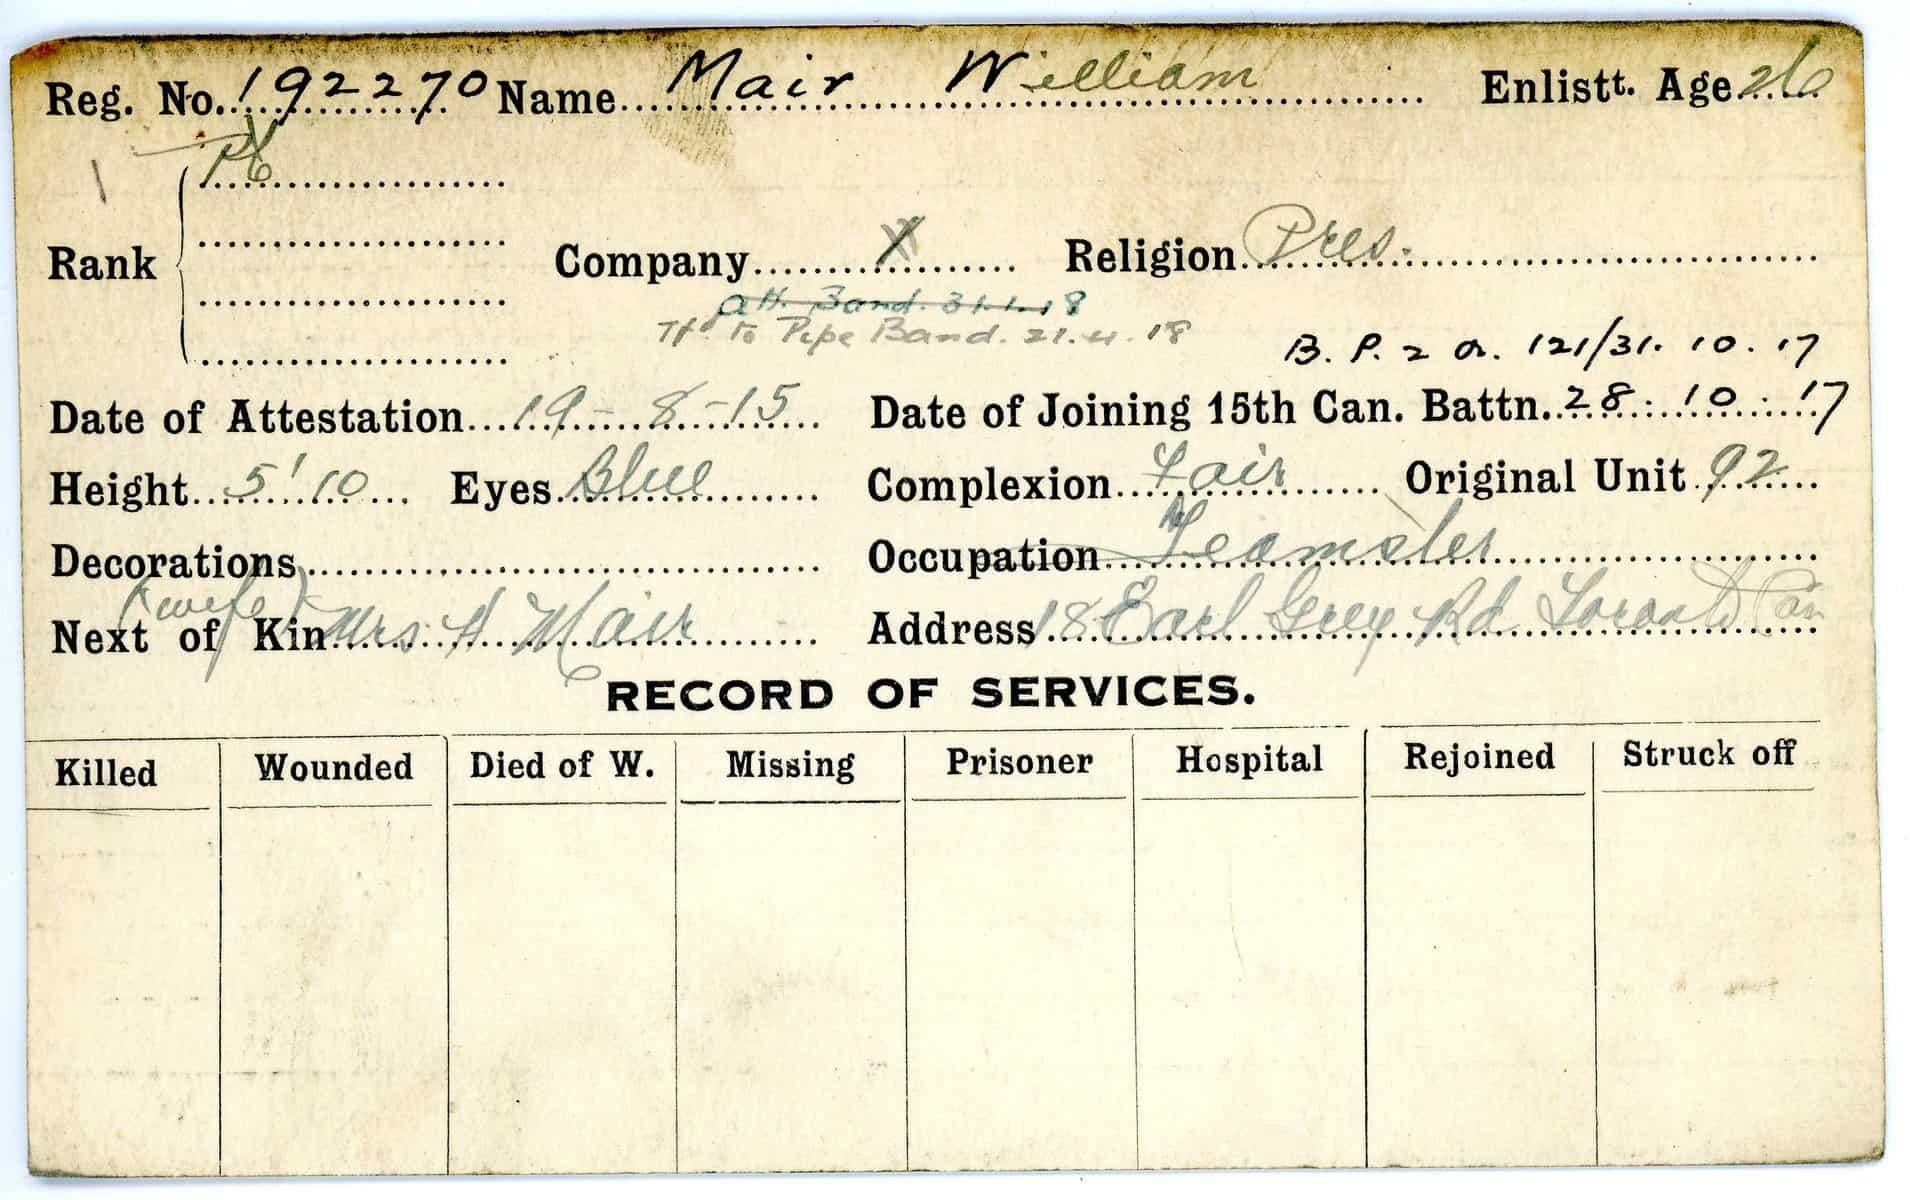 Reg. No. 192270 Name Mair William Enlistt. Age 26
Pte
Rank
Company Religion Pres.
att. Band. 31.1.18
Tfd to Pipe Band. 21.4.18
B. P. 2 Or. 121/31.10.17
Date of Attestation 19-8-15 Date of Joining 15th Can. Battn. 28.10.17
Height 5'10 Eyes Blue Complexion Fair Original Unit 92
Decorations Occupation Teamster
(wife)
Next of Kin Mrs A Mair Address 18 Earl Grey Rd Toronto Can
RECORD OF SERVICES.
Killed Wounded Died of W. Missing Prisoner Hospital Rejoined Struck off